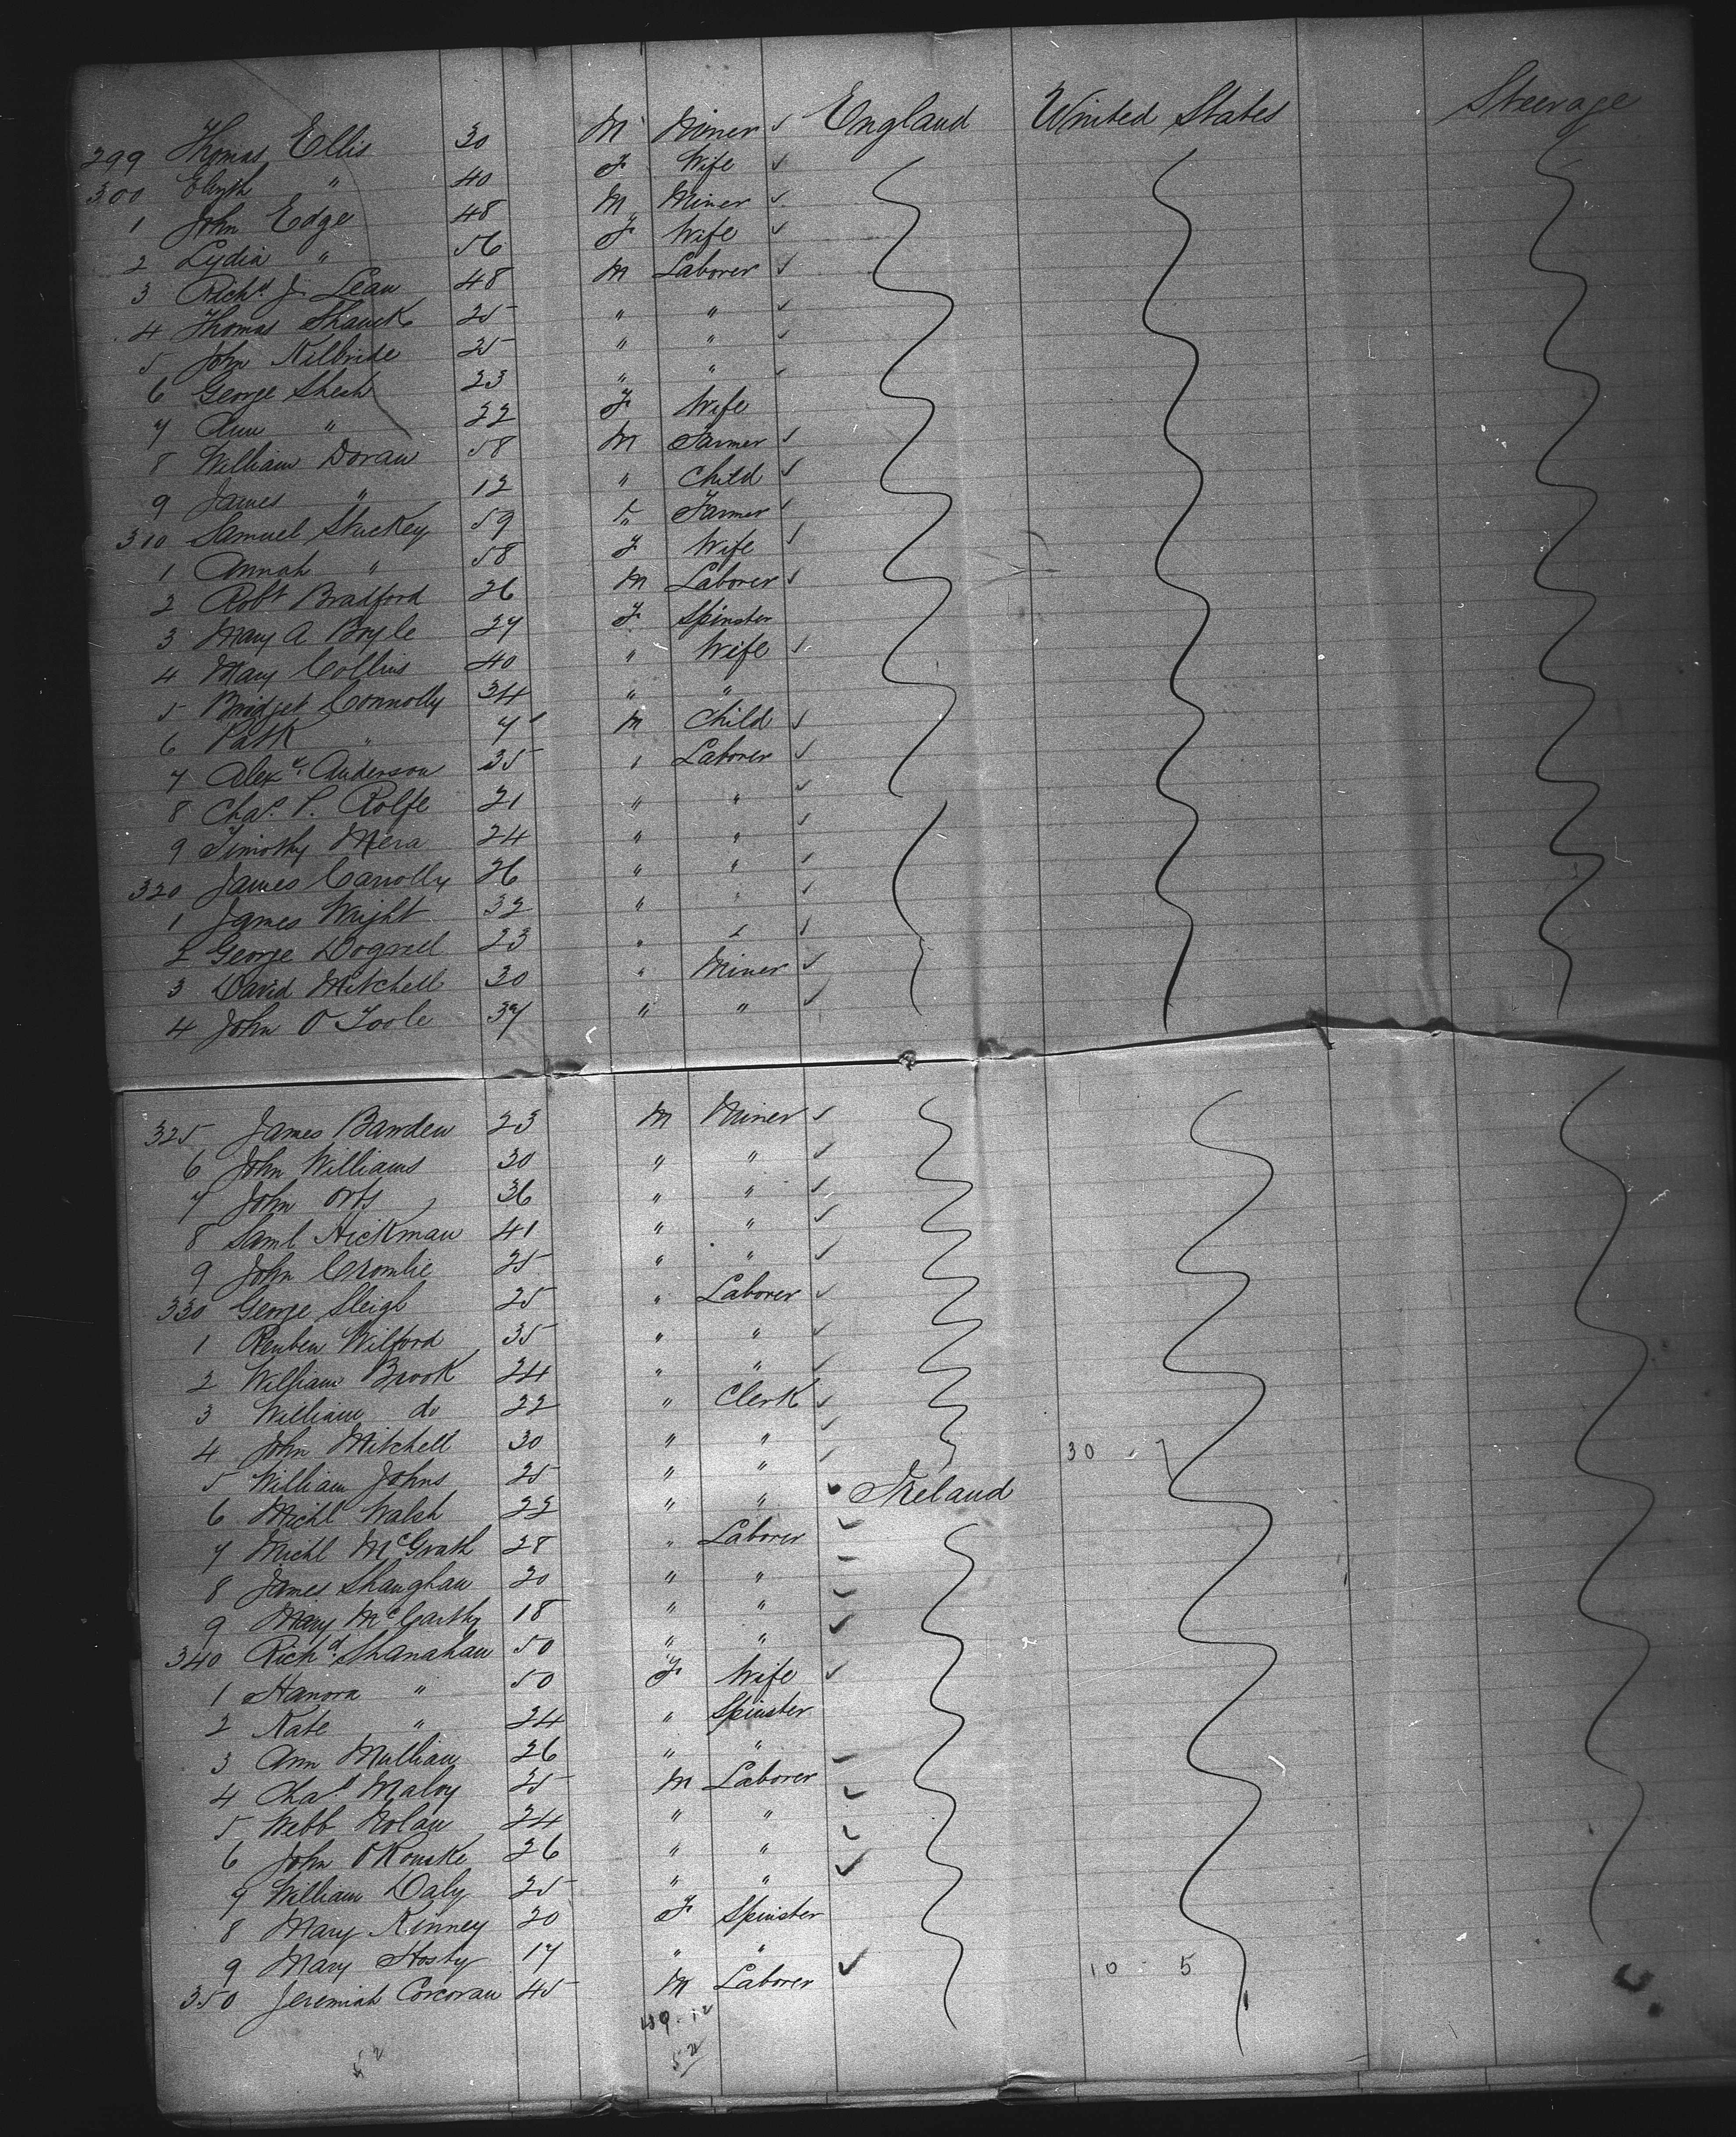 299 Thomas Ellis 30 M Miner England United States Steerage
300 Elizth " 40 F Wife
1 John Edge 48 M Miner
2 Lydia " 56 F Wife
3 Richd J Lean 48 M Laborer
4 Thomas Shauck 25 " "
5 John Kilbride 25 " "
6 George Shesh 23 " "
7 Ann " 22 F Wife
8 William Doran 58 M Farmer
9 James " 12 " Child
310 Samuel Stuckey 59 " Farmer
1 Annah " 58 F Wife
2 Robt Bradford 26 M Laborer
3 Mary A Boyle 27 F Spinster
4 Mary Collins 40 " Wife
5 Bridget Connolly 34 " "
6 Patk " 7 M Child
7 Alexr Anderson 35 " Laborer
8 Chas. P. Rolfe 21 " "
9 Timothy Mera 24 " "
320 James Carrolly 26 " "
1 James Wright 32 " "
2 George Dogarel 23 " "
3 David Mitchell 30 " Miner
4 John O Toole 37 " "
325 James Bawden 23 M Miner
6 John Williams 30 " "
7 John Orts 36 " "
8 Saml Hickman 41 " "
9 John Crombie 25 " "
330 George Sleigh 25 " Laborer
1 Reuben Wilford 35 " "
2 William Brook 24 " "
3 William do 22 " Clerk
4 John Mitchell 30 " " 30
5 William Johns 25 " "
6 Michl Walsh 22 " " Ireland
7 Michl McGrath 28 " Laborer
8 James Shaughan 20 " "
9 Mary McCarthy 18 " "
340 Richd Shanahan 50 " "
1 Hanora " 50 F Wife
2 Kate " 24 " Spinster
3 Ann Mullian 26 " "
4 Chas Maloy 25 M Laborer
5 Webb Nolan 24 " "
6 John O'Rouske 26 " "
7 William Daly 25 " "
8 Mary Kinney 20 F Spinster
9 Mary Hosty 17 " "
350 Jeremiah Corcoran 45 M Laborer 10 - 5
52 52